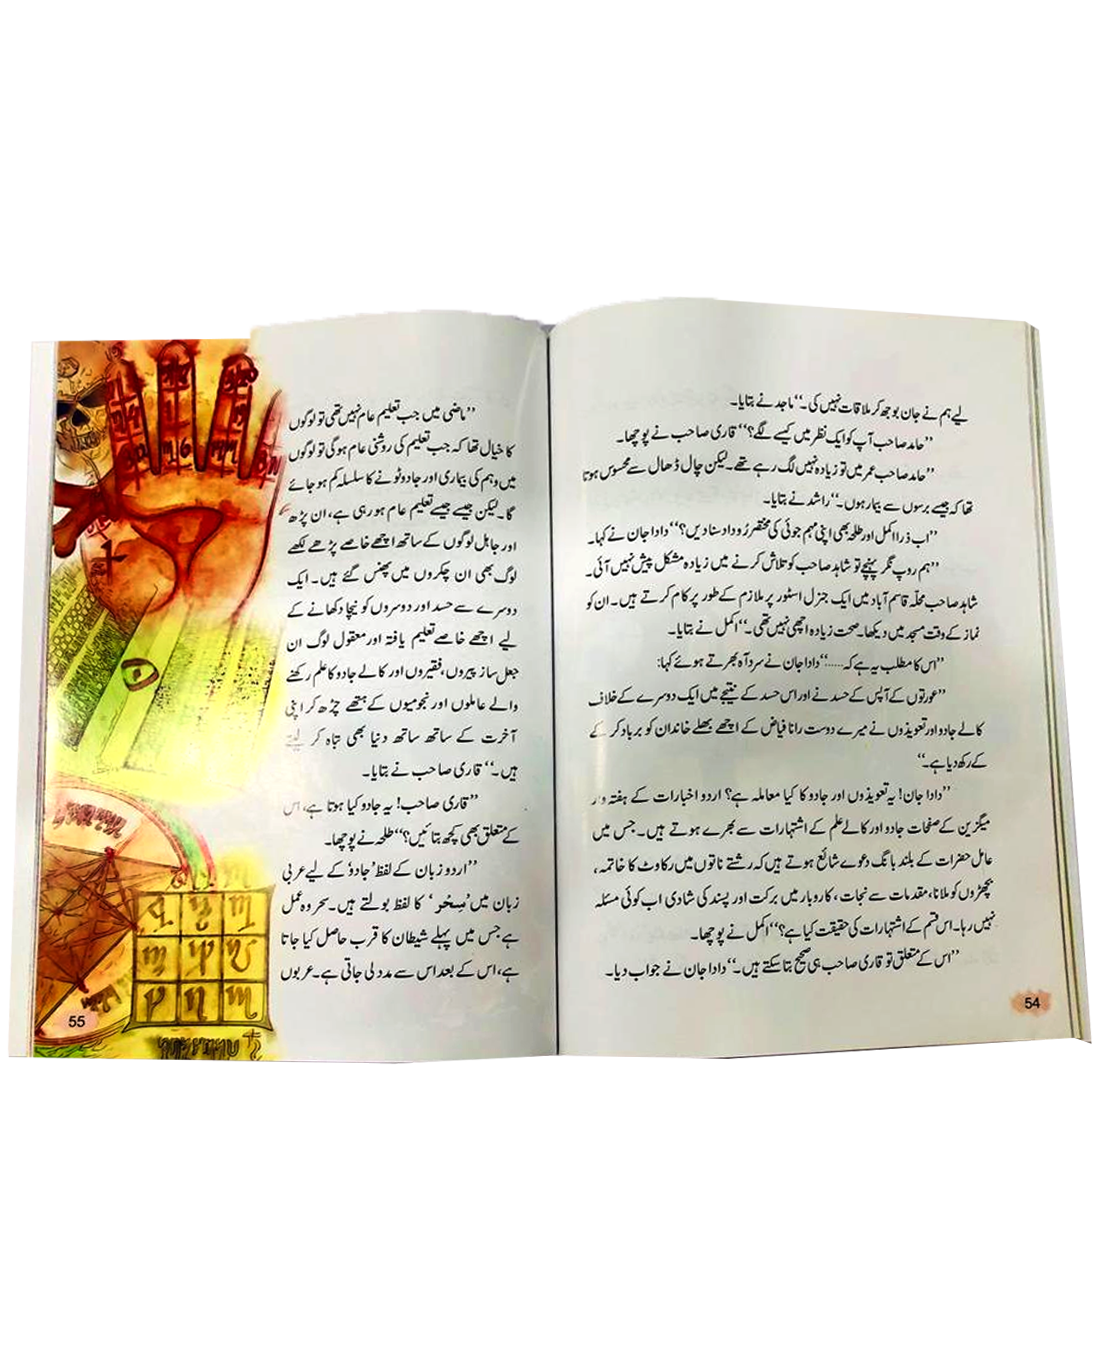 لیے ہم نے جان بوجھ کر ملاقات نہیں کی۔‘‘ ماجد نے بتایا۔
’’حامد صاحب آپ کو ایک نظر میں کیسے لگے؟‘‘ قاری صاحب نے پوچھا۔
’’حامد صاحب عمر میں تو زیادہ نہیں لگ رہے تھے۔ لیکن چال ڈھال سے محسوس ہوتا
تھا کہ جیسے برسوں سے بیمار ہوں۔‘‘ راشد نے بتایا۔
’’اب ذرا اکمل اور طلحہ بھی اپنی مہم جوئی کی مختصر رُوداد سنا دیں؟‘‘ دادا جان نے کہا۔
’’ہم روپ نگر پہنچے تو شاہد صاحب کو تلاش کرنے میں زیادہ مشکل پیش نہیں آئی۔
شاہد صاحب محلّہ قاسم آباد میں ایک جنرل اسٹور پر ملازم کے طور پر کام کرتے ہیں۔ ان کو
نماز کے وقت مسجد میں دیکھا۔ صحت زیادہ اچھی نہیں تھی۔‘‘ اکمل نے بتایا۔
’’اس کا مطلب یہ ہے کہ......‘‘ دادا جان نے سرد آہ بھرتے ہوئے کہا:
’’عورتوں کے آپس کے حسد نے اور اس حسد کے نتیجے میں ایک دوسرے کے خلاف
کالے جادو اور تعویذوں نے میرے دوست رانا فیاض کے اچھے بھلے خاندان کو برباد کر کے
کے رکھ دیا ہے۔‘‘
’’دادا جان! یہ تعویذوں اور جادو کا کیا معاملہ ہے؟ اردو اخبارات کے ہفتہ وار
میگزین کے صفحات جادو اور کالے علم کے اشتہارات سے بھرے ہوتے ہیں۔ جس میں
عامل حضرات کے بلند بانگ دعوے شائع ہوتے ہیں کہ رشتے ناتوں میں رکاوٹ کا خاتمہ،
بچھڑوں کو ملانا، مقدمات سے نجات، کاروبار میں برکت اور پسند کی شادی اب کوئی مسئلہ
نہیں رہا۔ اس قسم کے اشتہارات کی حقیقت کیا ہے؟‘‘ اکمل نے پوچھا۔
’’اس کے متعلق تو قاری صاحب ہی صحیح بتا سکتے ہیں۔‘‘ دادا جان نے جواب دیا۔
54
’’ماضی میں جب تعلیم عام نہیں تھی تو لوگوں
کا خیال تھا کہ جب تعلیم کی روشنی عام ہوگی تو لوگوں
میں وہم کی بیماری اور جادو ٹونے کا سلسلہ کم ہو جائے
گا۔ لیکن جیسے جیسے تعلیم عام ہو رہی ہے، ان پڑھ
اور جاہل لوگوں کے ساتھ اچھے خاصے پڑھے لکھے
لوگ بھی ان چکروں میں پھنس گئے ہیں۔ ایک
دوسرے سے حسد اور دوسروں کو نیچا دکھانے کے
لیے اچھے خاصے تعلیم یافتہ اور معقول لوگ ان
جعل ساز پیروں، فقیروں اور کالے جادو کا علم رکھنے
والے عاملوں اور نجومیوں کے ہتھے چڑھ کر اپنی
آخرت کے ساتھ ساتھ دنیا بھی تباہ کر لیتے
ہیں۔‘‘ قاری صاحب نے بتایا۔
’’قاری صاحب! یہ جادو کیا ہوتا ہے، اس
کے متعلق بھی کچھ بتائیں؟‘‘ طلحہ نے پوچھا۔
’’اردو زبان کے لفظ ’جادو‘ کے لیے عربی
زبان میں ’سِحْر‘ کا لفظ بولتے ہیں۔ سحر وہ عمل
ہے جس میں پہلے شیطان کا قرب حاصل کیا جاتا
ہے، اس کے بعد اس سے مدد لی جاتی ہے۔ عربوں
55